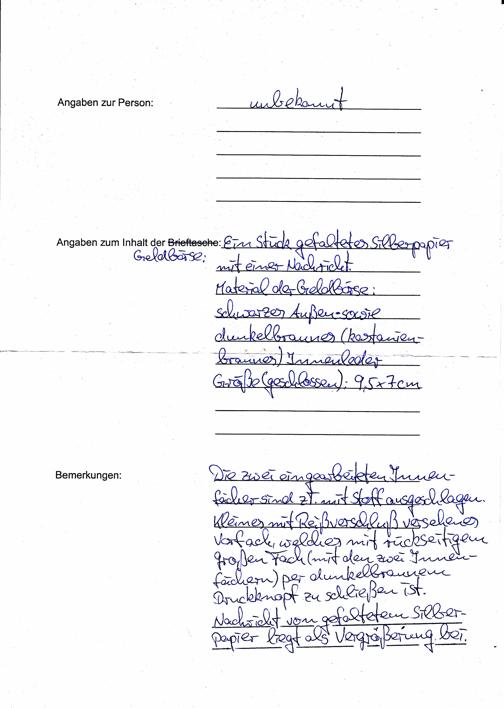 Angaben zur Person: unbekannt
Angaben zum Inhalt der Brieftasche: Ein Stück gefaltetes Silberpapier
Geldbörse: mit einer Nachricht.
Material der Geldbörse:
schwarzes Außen- sowie
dunkelbraunes (kastanien-
braunes) Innenleder
Größe (geschlossen): 9,5 x 7 cm
Bemerkungen: Die zwei eingearbeiteten Innen-
fächer sind z.T. mit Stoff ausgeschlagen.
Kleines mit Reißverschluß versehenes
Vorfach, welches mit rückseitigem
großen Fach (mit den zwei Innen-
fächern) per dunkelbraunem
Druckknopf zu schließen ist.
Nachricht von gefaltetem Silber-
papier liegt als Vergrößerung bei.